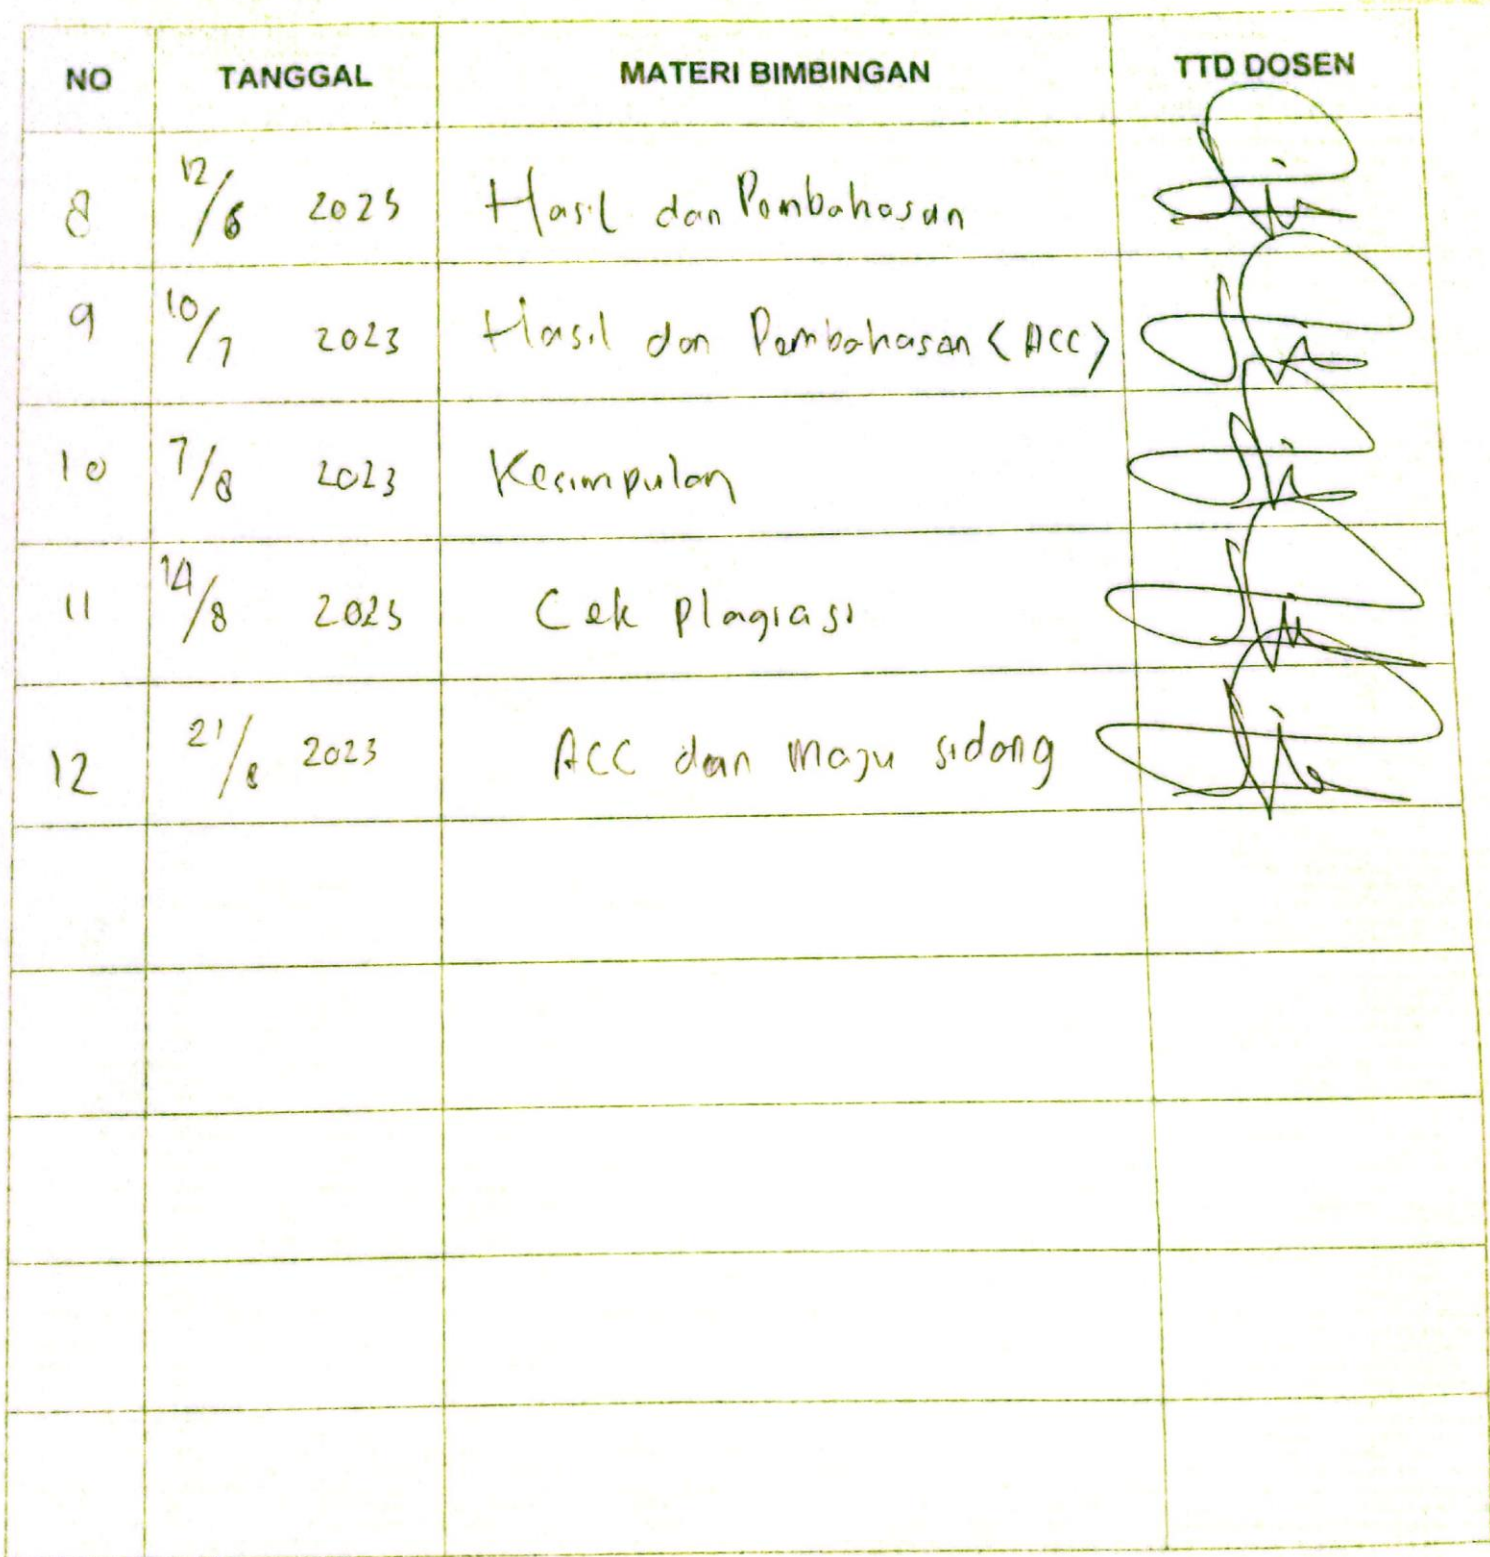 NO TANGGAL MATERI BIMBINGAN TTD DOSEN
8 12/6 2023 Hasil dan Pembahasan
9 10/7 2023 Hasil dan Pembahasan (ACC)
10 7/8 2023 Kesimpulan
11 14/8 2023 Cek plagiasi
12 21/8 2023 ACC dan maju sidang